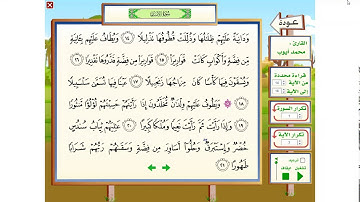 سورة الإنسان
وَدَانِيَةً عَلَيْهِمْ ظِلَالُهَا وَذُلِّلَتْ قُطُوفُهَا تَذْلِيلًا ﴿١٤﴾ وَيُطَافُ عَلَيْهِم بِآنِيَةٍ
مِّن فِضَّةٍ وَأَكْوَابٍ كَانَتْ قَوَارِيرَا ﴿١٥﴾ قَوَارِيرَا مِن فِضَّةٍ قَدَّرُوهَا تَقْدِيرًا ﴿١٦﴾
وَيُسْقَوْنَ فِيهَا كَأْسًا كَانَ مِزَاجُهَا زَنجَبِيلًا ﴿١٧﴾ عَيْنًا فِيهَا تُسَمَّىٰ سَلْسَبِيلًا
﴿١٨﴾ وَيَطُوفُ عَلَيْهِمْ وِلْدَانٌ مُّخَلَّدُونَ إِذَا رَأَيْتَهُمْ حَسِبْتَهُمْ لُؤْلُؤًا مَّنثُورًا
﴿١٩﴾ وَإِذَا رَأَيْتَ ثَمَّ رَأَيْتَ نَعِيمًا وَمُلْكًا كَبِيرًا ﴿٢٠﴾ عَالِيَهُمْ ثِيَابُ سُندُسٍ
خُضْرٌ وَإِسْتَبْرَقٌ وَحُلُّوا أَسَاوِرَ مِن فِضَّةٍ وَسَقَاهُمْ رَبُّهُمْ شَرَابًا
طَهُورًا ﴿٢١﴾
عودة
القارئ :
محمد أيوب
قراءة محددة
من الآية
إلى الآية
تكرار السورة
تكرار الآية